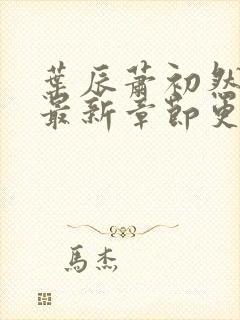 葉辰蕭初然
最新章節更
馬杰